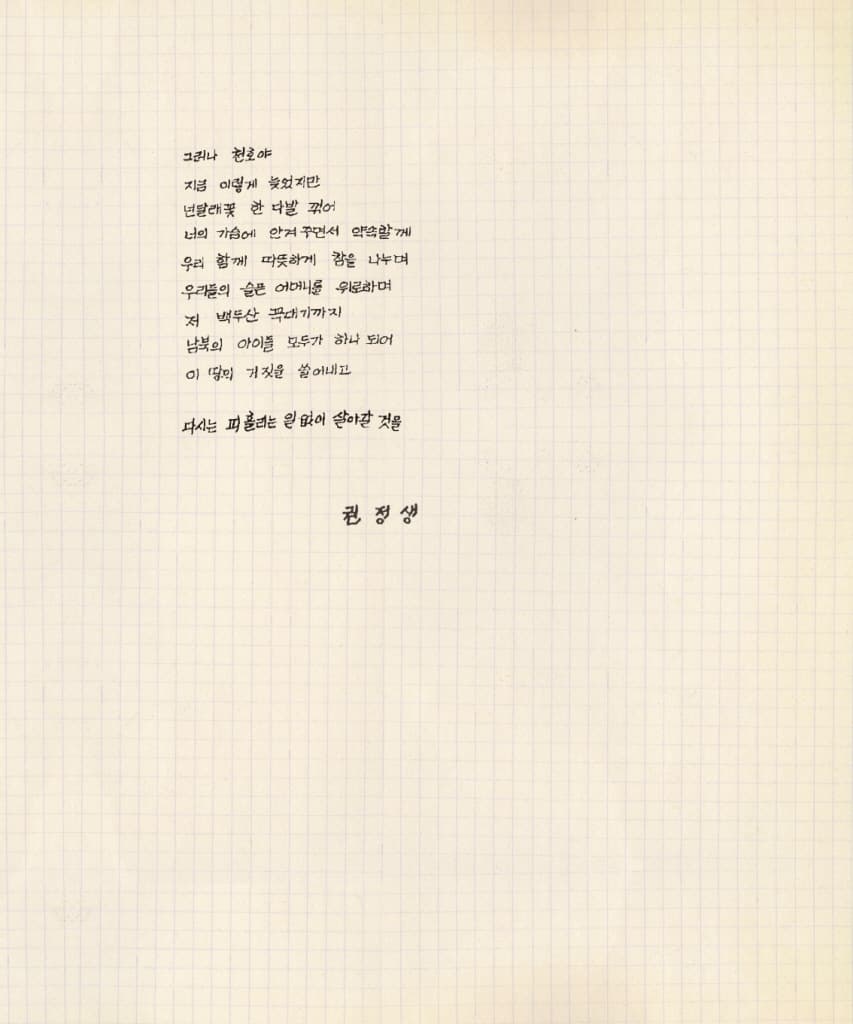 그러나 현호야
지금 이렇게 늦었지만
년달래꽃 한 다발 꺾어
너의 가슴에 안겨 주면서 약속할게
우리 함께 따뜻하게 참을 나누며
우리들의 슬픈 어머니를 위로하며
저 백두산 꼭대기까지
남북의 아이들 모두가 하나 되어
이 땅의 거짓을 쓸어내고
다시는 피 흘리는 일 없이 살아갈 것을
권 정 생